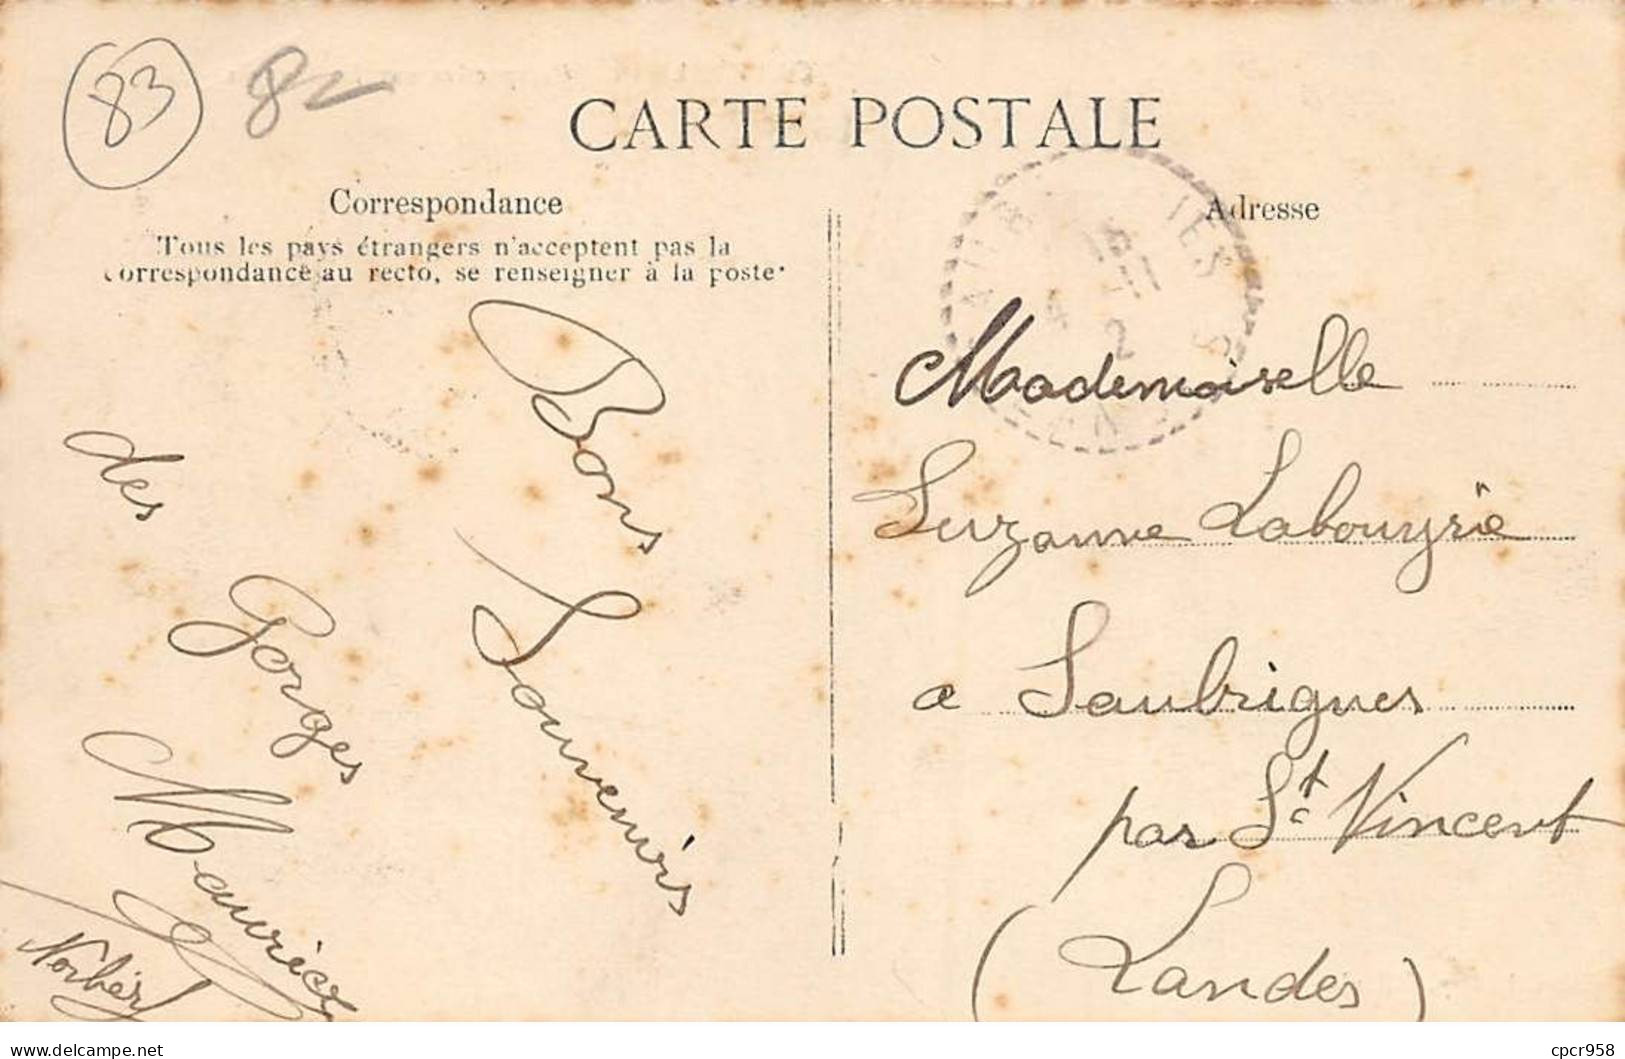 83
82
CARTE POSTALE
Correspondance
Tous les pays étrangers n'acceptent pas la
correspondance au recto, se renseigner à la poste.
Bons
Souvenirs
des
Gorges
Maurice
Norbert
Adresse
Mademoiselle
Suzanne Labouyrie
a Saubrigues
par St Vincent
(Landes)
delcampe.net
cpcr958